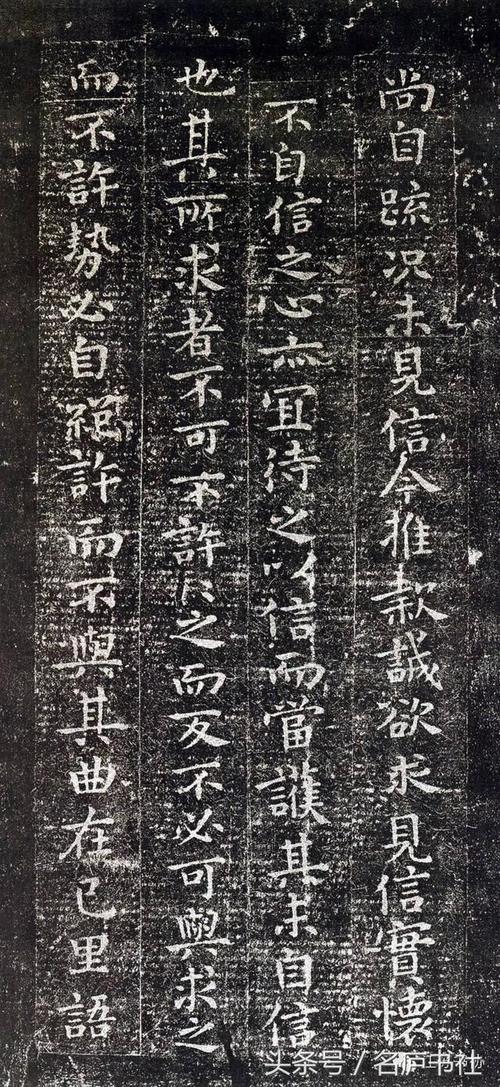 尚自踈况未見信今推款誠欲求見信實懷
不自信之心亦宜待之以信而當護其未自信
也其所求者不可不許〻之而反不必可與求之
而不許勢必自絕許而不與其曲在己里語
头条号／名庐书社